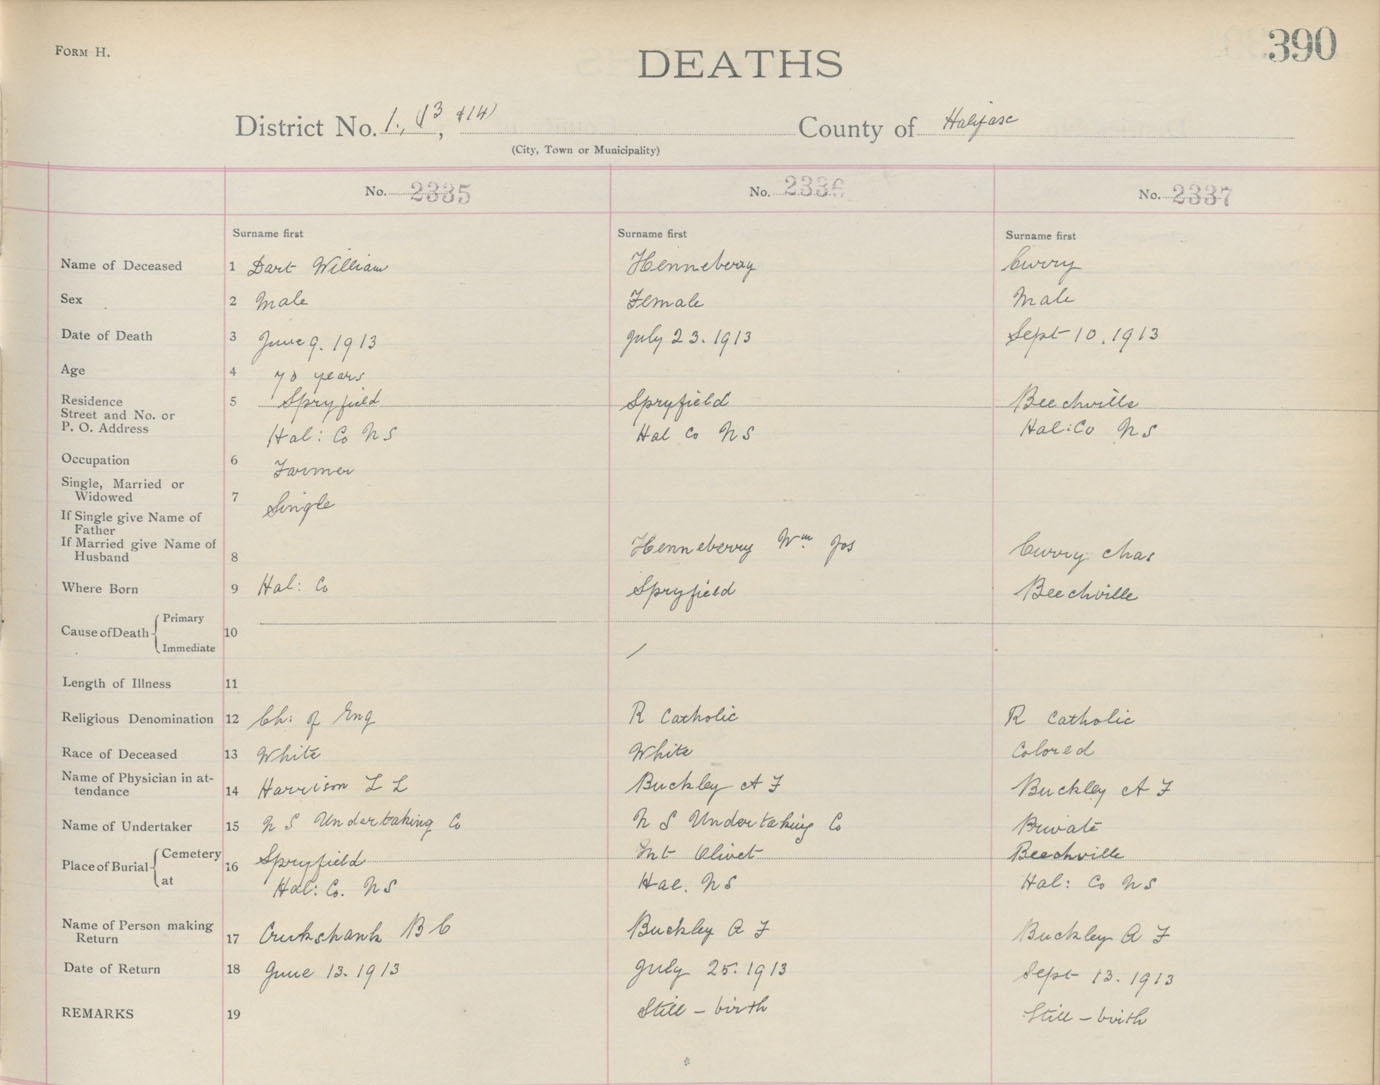 FORM H.
DEATHS
390
District No. 1., (13, &14) County of Halifax
(City, Town or Municipality)
No. 2335 No. 2336 No. 2337
Surname first Surname first Surname first
Name of Deceased 1 Dart William Henneberry Curry
Sex 2 Male Female Male
Date of Death 3 June 9. 1913 July 23. 1913 Sept 10. 1913
Age 4 70 years
Residence 5 Spryfield Spryfield Beechville
Street and No. or
P. O. Address Hal: Co N S Hal Co N S Hal: Co N S
Occupation 6 Farmer
Single, Married or
Widowed 7 Single
If Single give Name of
Father
If Married give Name of
Husband 8 Henneberry Wm Jos Curry Chas
Where Born 9 Hal: Co Spryfield Beechville
Cause of Death Primary
10
Immediate /
Length of Illness 11
Religious Denomination 12 Ch: of Eng R Catholic R Catholic
Race of Deceased 13 White White Colored
Name of Physician in at-
tendance 14 Harrison L L Buckley A F Buckley A F
Name of Undertaker 15 N S Undertaking Co N S Undertaking Co Private
Place of Burial Cemetery 16 Spryfield Mt Olivet Beechville
at Hal: Co. N S Hal. N S Hal: Co N S
Name of Person making
Return 17 Cruikshank B C Buckley A F Buckley A F
Date of Return 18 June 13. 1913 July 25. 1913 Sept 13. 1913
REMARKS 19 Still - birth Still - birth